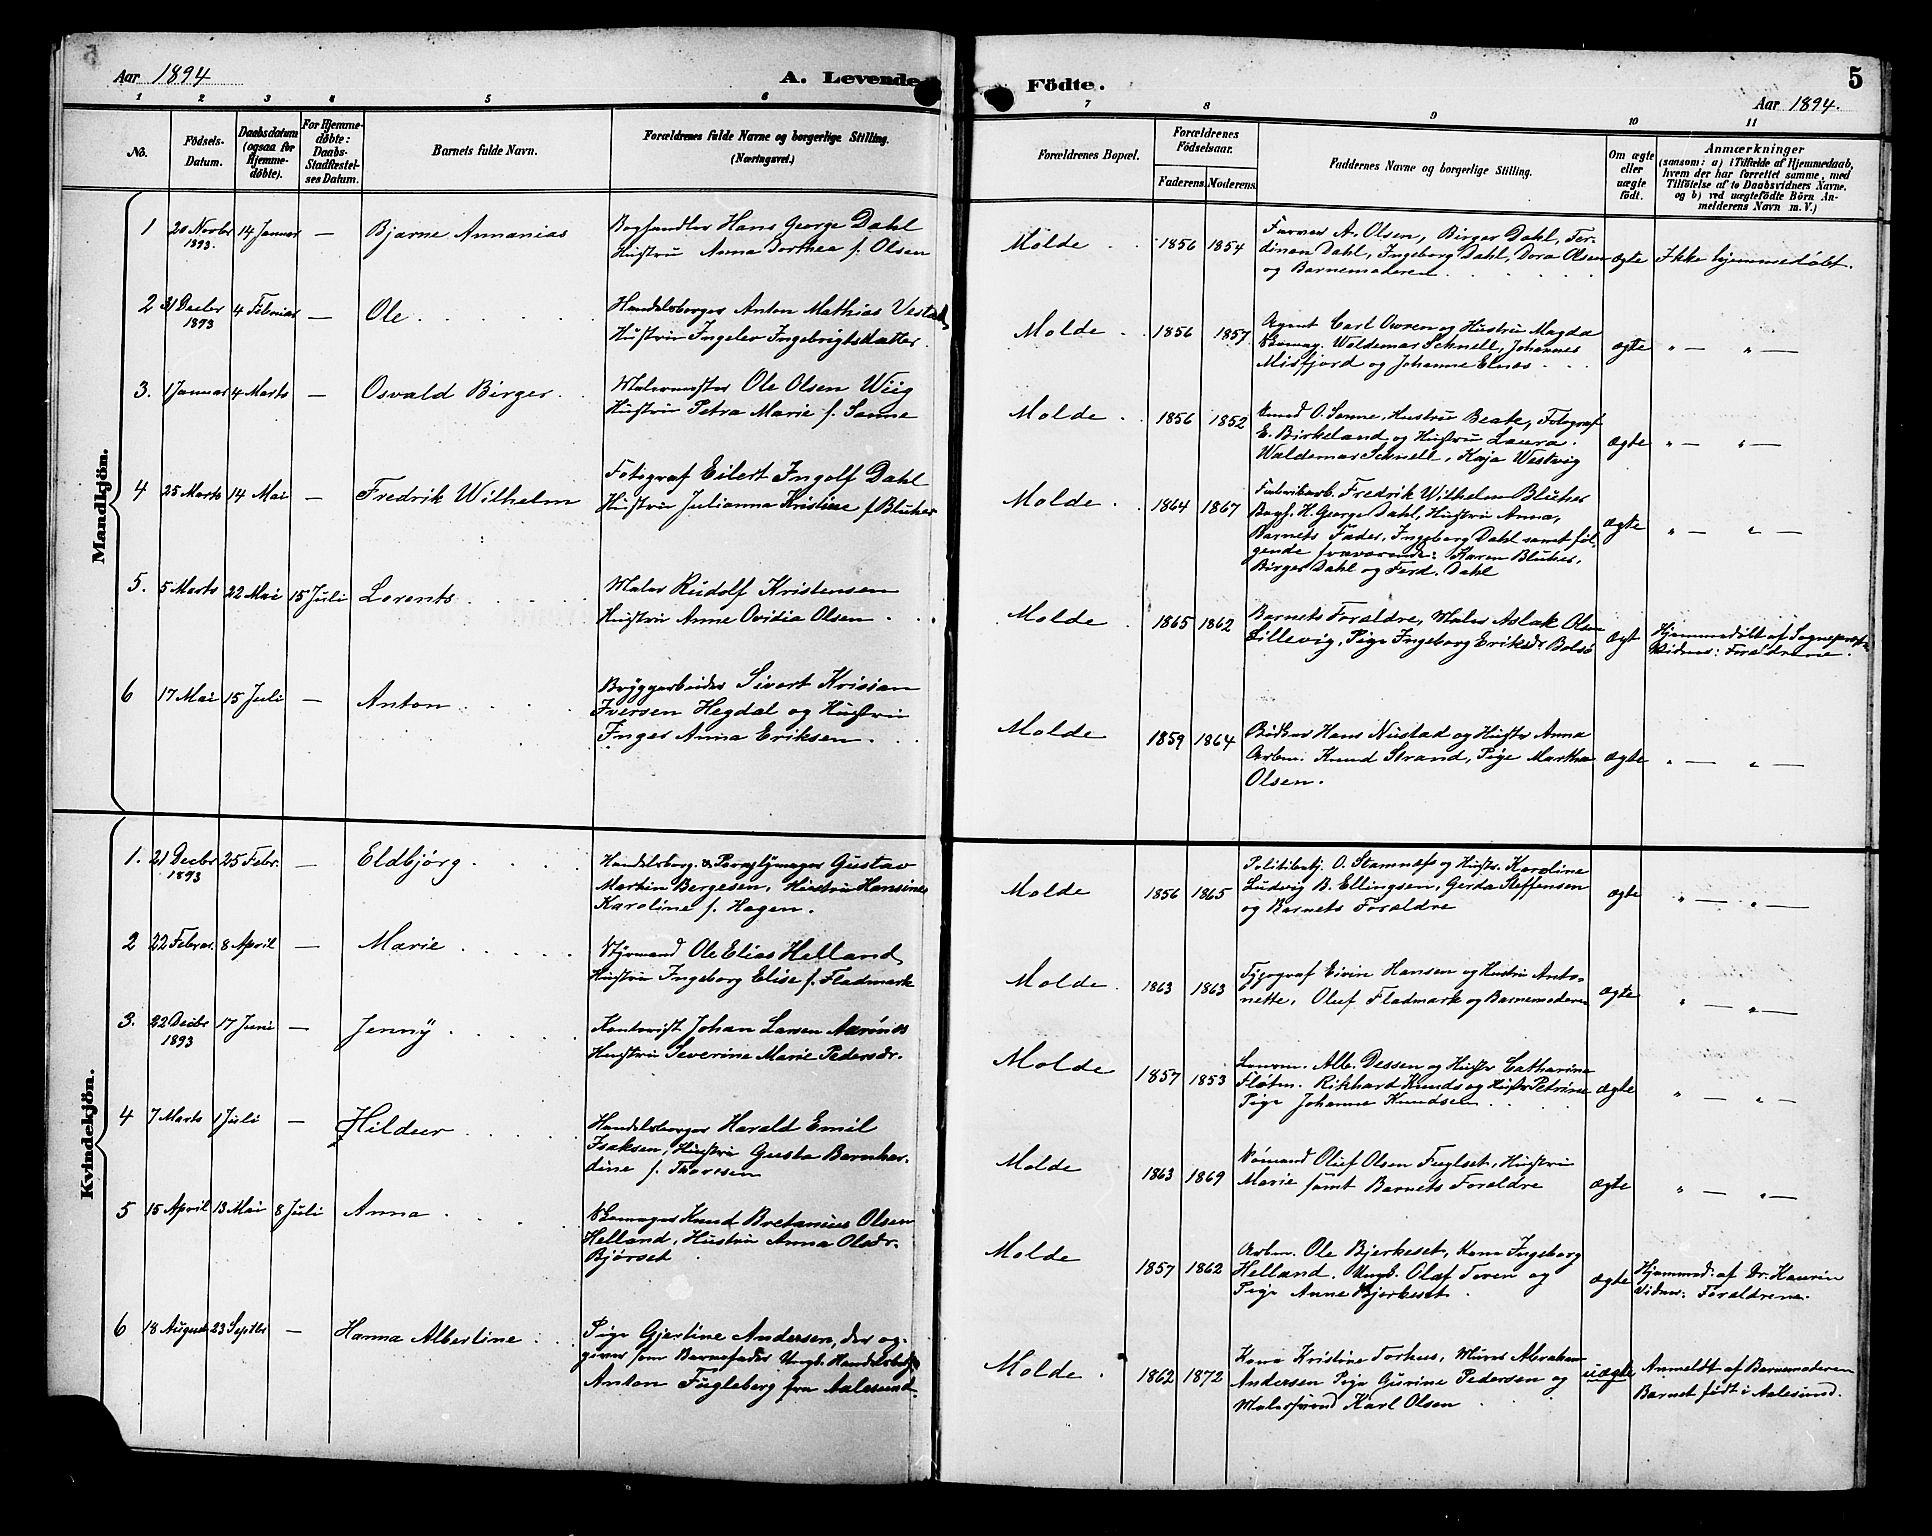 Aar 1894
A. Levende
1 2 3 4 5 6
No.
Födsels-
Datum.
Daabsdatum
(ogsaa for
Hjemme-
døbte).
For Hjemme-
døbte:
Daabs-
Stadfæstel-
ses Datum.
Barnets fulde Navn.
Forældrenes fulde Navne og borgerlige Stilling.
(Næringsvei.)
Mandkjön.
1 20 Novbr 14 Januar — Bjarne Annanias
1893
Boghandler Hans George Dahl
Hustru Anna Dorthea f. Olsen
2 31 Decbr 4 Februar — Ole
1893
Handelsborger Anton Mathias Vestad
Hustru Ingeler Ingebrigtsdatter
3. 1 Januar 4 Marts — Osvald Birger
Malermester Ole Olsen Wiig
Hustru Petra Marie f. Sanne
4 25 Marts 14 Mai — Fredrik Wilhelm
Fotograf Eilert Ingolf Dahl
Hustru Julianna Kristine f Blücher
5. 5 Marts 22 Mai 15 Juli Lorents
Maler Rudolf Kristensen
Hustru Anne Ovidia Olsen
6 17 Mai 15 Juli — Anton
Bryggearbeider Sivert Kristian
Iversen Hegdal og Hustru
Inger Anna Eriksen
Kvindekjön.
1. 21 Decbr 25 Febr. — Eldbjørg
1893
Handelsborg. & Paraplymager Gustav
Martin Bergesen, Hustru Hansine
Karoline f. Hagen.
2 22 Februar 8 April — Marie
Styrmand Ole Elias Helland
Hustru Ingeborg Elise f. Fladmark
3. 22 Decbr 17 Juni — Jenny
1893
Kontorist Johan Larsen Aarønes
Hustru Severine Marie Pedersdr.
4 7 Marts 1 Juli — Hildur
Handelsborger Harald Emil
Isaksen, Hustru Gusta Bernhar-
dine f. Thoresen
5 15 April 13 Mai 8 Juli Anna
Skomager Knud Bretanius Olsen
Helland, Hustru Anna Olsdr.
Bjørset
6 18 August 23 Septbr — Hanna Albertine
Pige Gjertine Andersen, der op-
giver som Barnefader Ungk. Handelsbetj.
Anton Fugleberg fra Aalesund
Födte.
5
Aar 1894.
7 8 9 10 11
Forældrenes Bopæl.
Forældrenes
Födselsaar.
Faderens. Moderens.
Faddernes Navne og borgerlige Stilling.
Om ægte
eller
uægte
födt.
Anmærkninger
(saasom: a) i Tilfælde af Hjemmedaab,
hvem der har forrettet samme, med
Tilföielse af to Daabsvidners Navne,
og b) ved uægtefödte Börn An-
melderens Navn m. V.)
Molde 1856 1854
A. Olsen, Birger Dahl, Fer-
dinan Dahl, Ingeborg Dahl, Dora Olsen
og Barnemoderen
ægte Ikke hjemmedøbt.
Molde 1856 1857
Agent Carl Owren og Hustru Magda
Skomag. Waldemar Schnell, Johannes
Misfjord og Johanne Elnes
ægte „ — „ —
Molde 1856 1852
Smed O. Sanne, Hustru Beate, Fotograf
E. Birkeland og Hustru Laura.
Waldemar Schnell, Kaja Westvig
ægte „ — „ —
Molde 1864 1867
Fabrikarb. Fredrik Wilhelm Blücher
Bogh. H. George Dahl, Hustru Anna,
Barnets Fader, Ingeborg Dahl samt føl-
gende fraværende: Karen Blücher,
Birger Dahl og Ferd. Dahl
ægte „ — „ —
Molde 1865 1862
Barnets Forældre, Maler Aslak Olsen
Lillevig, Pige Ingeborg Eriksdr Bolsø
ægt Hjemmedøbt af Sognepræsten
Vidner: Forældrene.
Molde 1859 1864
Bødker Hans Nustad og Hustr Anna
Arbm. Knud Strand, Pige Martha
Olsen.
ægte „ — „ —
Molde 1856 1865
Politibetj. O. Stamnæs og Hustr. Karoline
Ludvig B. Ellingsen, Gerda Steffensen
og Barnets Forældre
ægte „ — „ —
Molde 1863 1863
Typograf Eivin Hansen og Hustru Anto-
nette, Oluf Fladmark og Barnemoderen
ægte „ — „ —
Molde 1857 1853
Alb. Dessen og Hustr Catharina
Fløtm. Rikhard Knuds og Hustr Petrine
Pige Johanne Knudsen
ægte „ — „ —
Molde 1863 1869
Sømand Oluf Olsen Fuglset, Hustru
Marie samt Barnets Forældre
ægte „ — „ —
Molde 1857 1862
Arbm. Ole Bjerkeset, Kona Ingeborg
Helland. Ungk. Olaf Toven og
Pige Anne Bjerkeset
ægte Hjemmed. af Dr. Kaurin
Vidner: Forældrene.
Molde 1862 1872
Kona Kristine Torhus, Murer Abraham
Andersen Pige Gurine Pedersen og
Malersvend Karl Olsen
uægte Anmeldt af Barnemoderen
Barnet født i Aalesund.